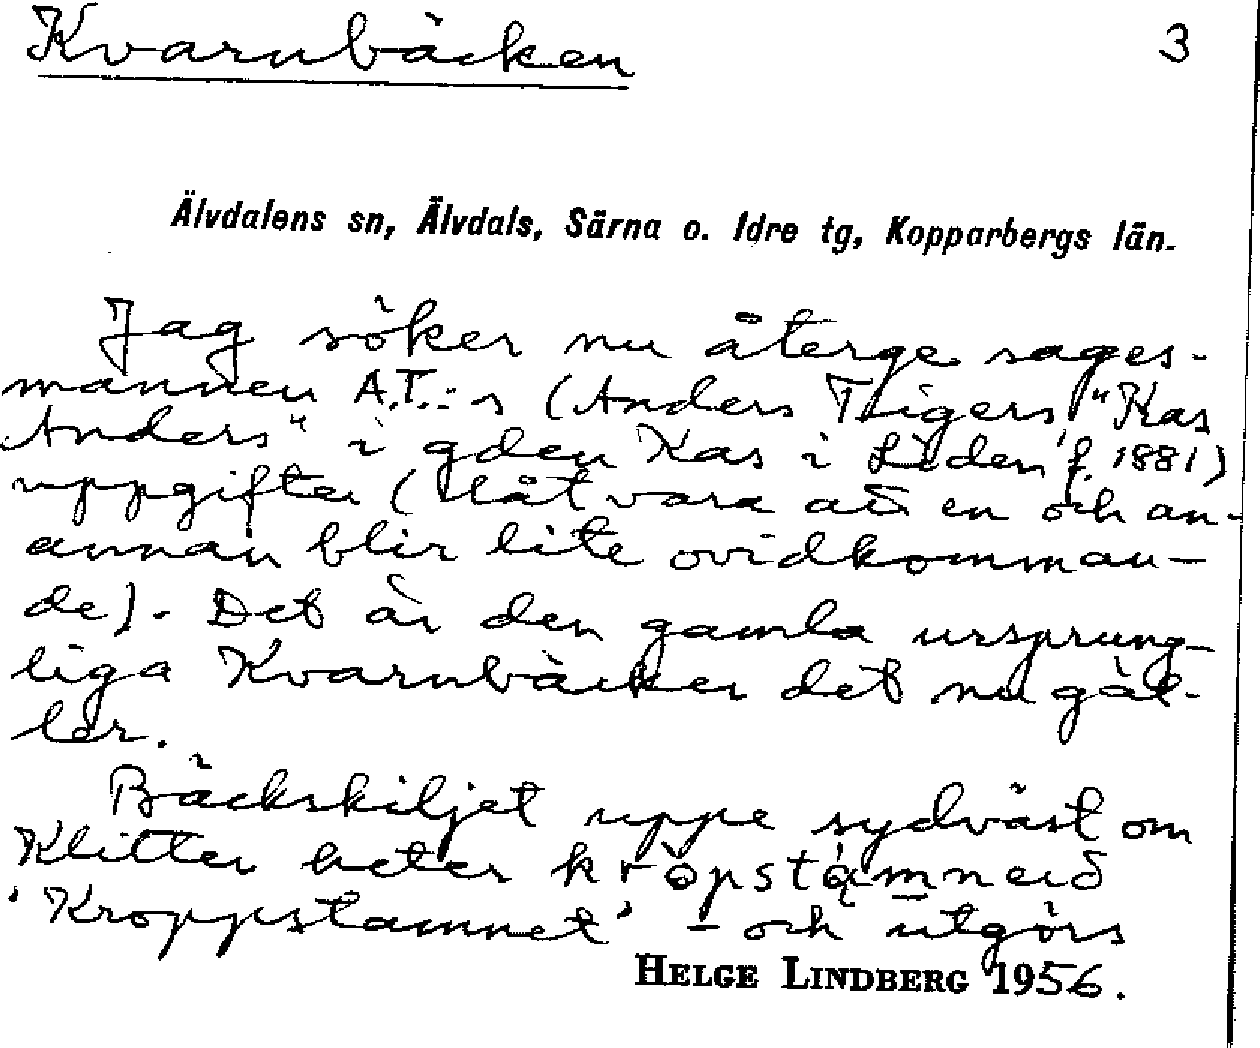 Kvarnbäcken 3
Älvdalens sn, Älvdals, Särna o. Idre tg, Kopparbergs län.
Jag söker nu återge sages-
mannen A.T.:s (Anders Tigers "Kas
Anders" i gden Kas i Liden f. 1881)
uppgifter (låt vara att en och an-
annan blir lite ovidkomman-
de). Det är den gamla ursprung-
liga Kvarnbäcken det nu gäl-
ler.
Bäckskiljet uppe sydväst om
Klitten heter
'Kroppstamnet' - och utgörs
HELGE LINDBERG 1956.